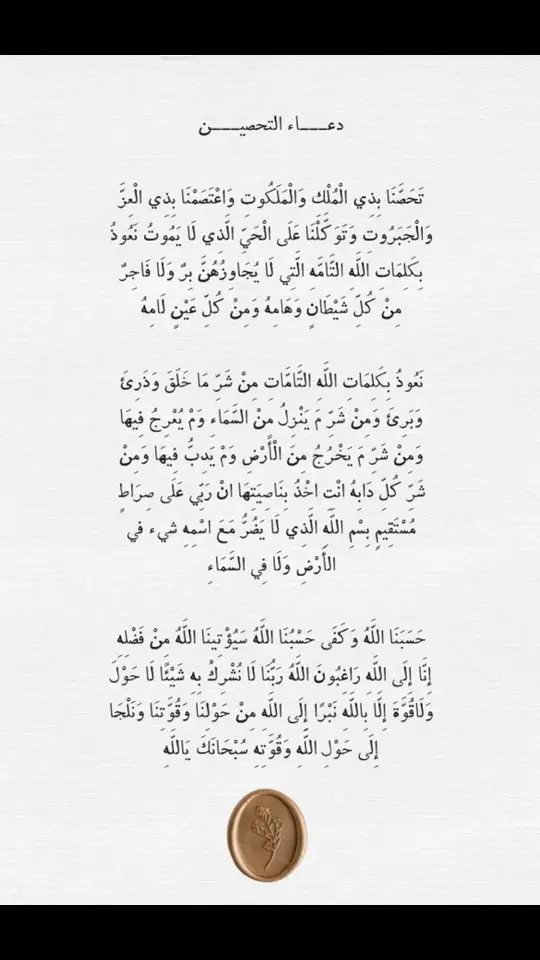 دعـــــاء التحصيـــــن
تَحَصَّنَا بِذِي الْمُلْك وَالْمَلَكُوتِ وَاعْتَصَمْنَا بِذِي الْعِزَّ
وَالْجَبَرُوتِ وَتَوَكَّلْنَا عَلَى الْحَيِّ الَّذِي لَا يَمُوتُ نَعُوذُ
بِكَلِمَاتِ اللَّهِ التَّامَّهِ الَّتِي لَا يُجَاوِزُهُنَّ بِرٌ وَلَا فَاجِرٌ
مِنْ كُلِّ شَيْطَانٍ وَهَامِهُ وَمِنْ كُلِّ عَيْنٍ لَامِهُ
نَعُوذُ بِكَلِمَاتِ اللَّهِ التَّامَّاتِ مِنْ شَرِّ مَا خَلَقَ وَذَرِئَ
وَبَرِئَ وَمِنْ شَرِّ مَ يَنْزِلُ مِنْ السَّمَاءِ وَمْ يُعْرِجُ فِيهَا
وَمِنْ شَرِّ مَ يَخْرُجُ مِنَ الْأَرْضِ وَمْ يَدِبُّ فِيهَا وَمِنْ
شَرِّ كُلِّ دَابِهُ انْتِ اخْذُ بِنَاصِيَتِهَا انْ رَبِّي عَلَى صِرَاطٍ
مُسْتَقِيمٍ بِسْمِ اللَّهِ الَّذِي لَا يَضُرُّ مَعَ اسْمِهِ شيء في
الأَرْضِ وَلَا فِي السَّمَاءِ
حَسَبَنَا اللَّهُ وَكَفَى حَسْبُنَا اللَّهُ سَيُؤْتِينَا اللَّهُ مِنْ فَضْلِهِ
إِنَّا إِلَى اللَّهِ رَاغِبُونَ اللَّهُ رَبُّنَا لَا نُشْرِكُ بِهِ شَيْئًا لَا حَوْلَ
وَلَاقُوَّة إِلَّا بِاللَّهِ نَبْرًا إِلَى اللَّهِ مِنْ حَوْلِنَا وَقُوَّتِنَا وَنَلْجَا
إِلَى حَوْلِ اللَّهِ وَقُوَّتِهِ سُبْحَانَكَ يَاللَّهِ